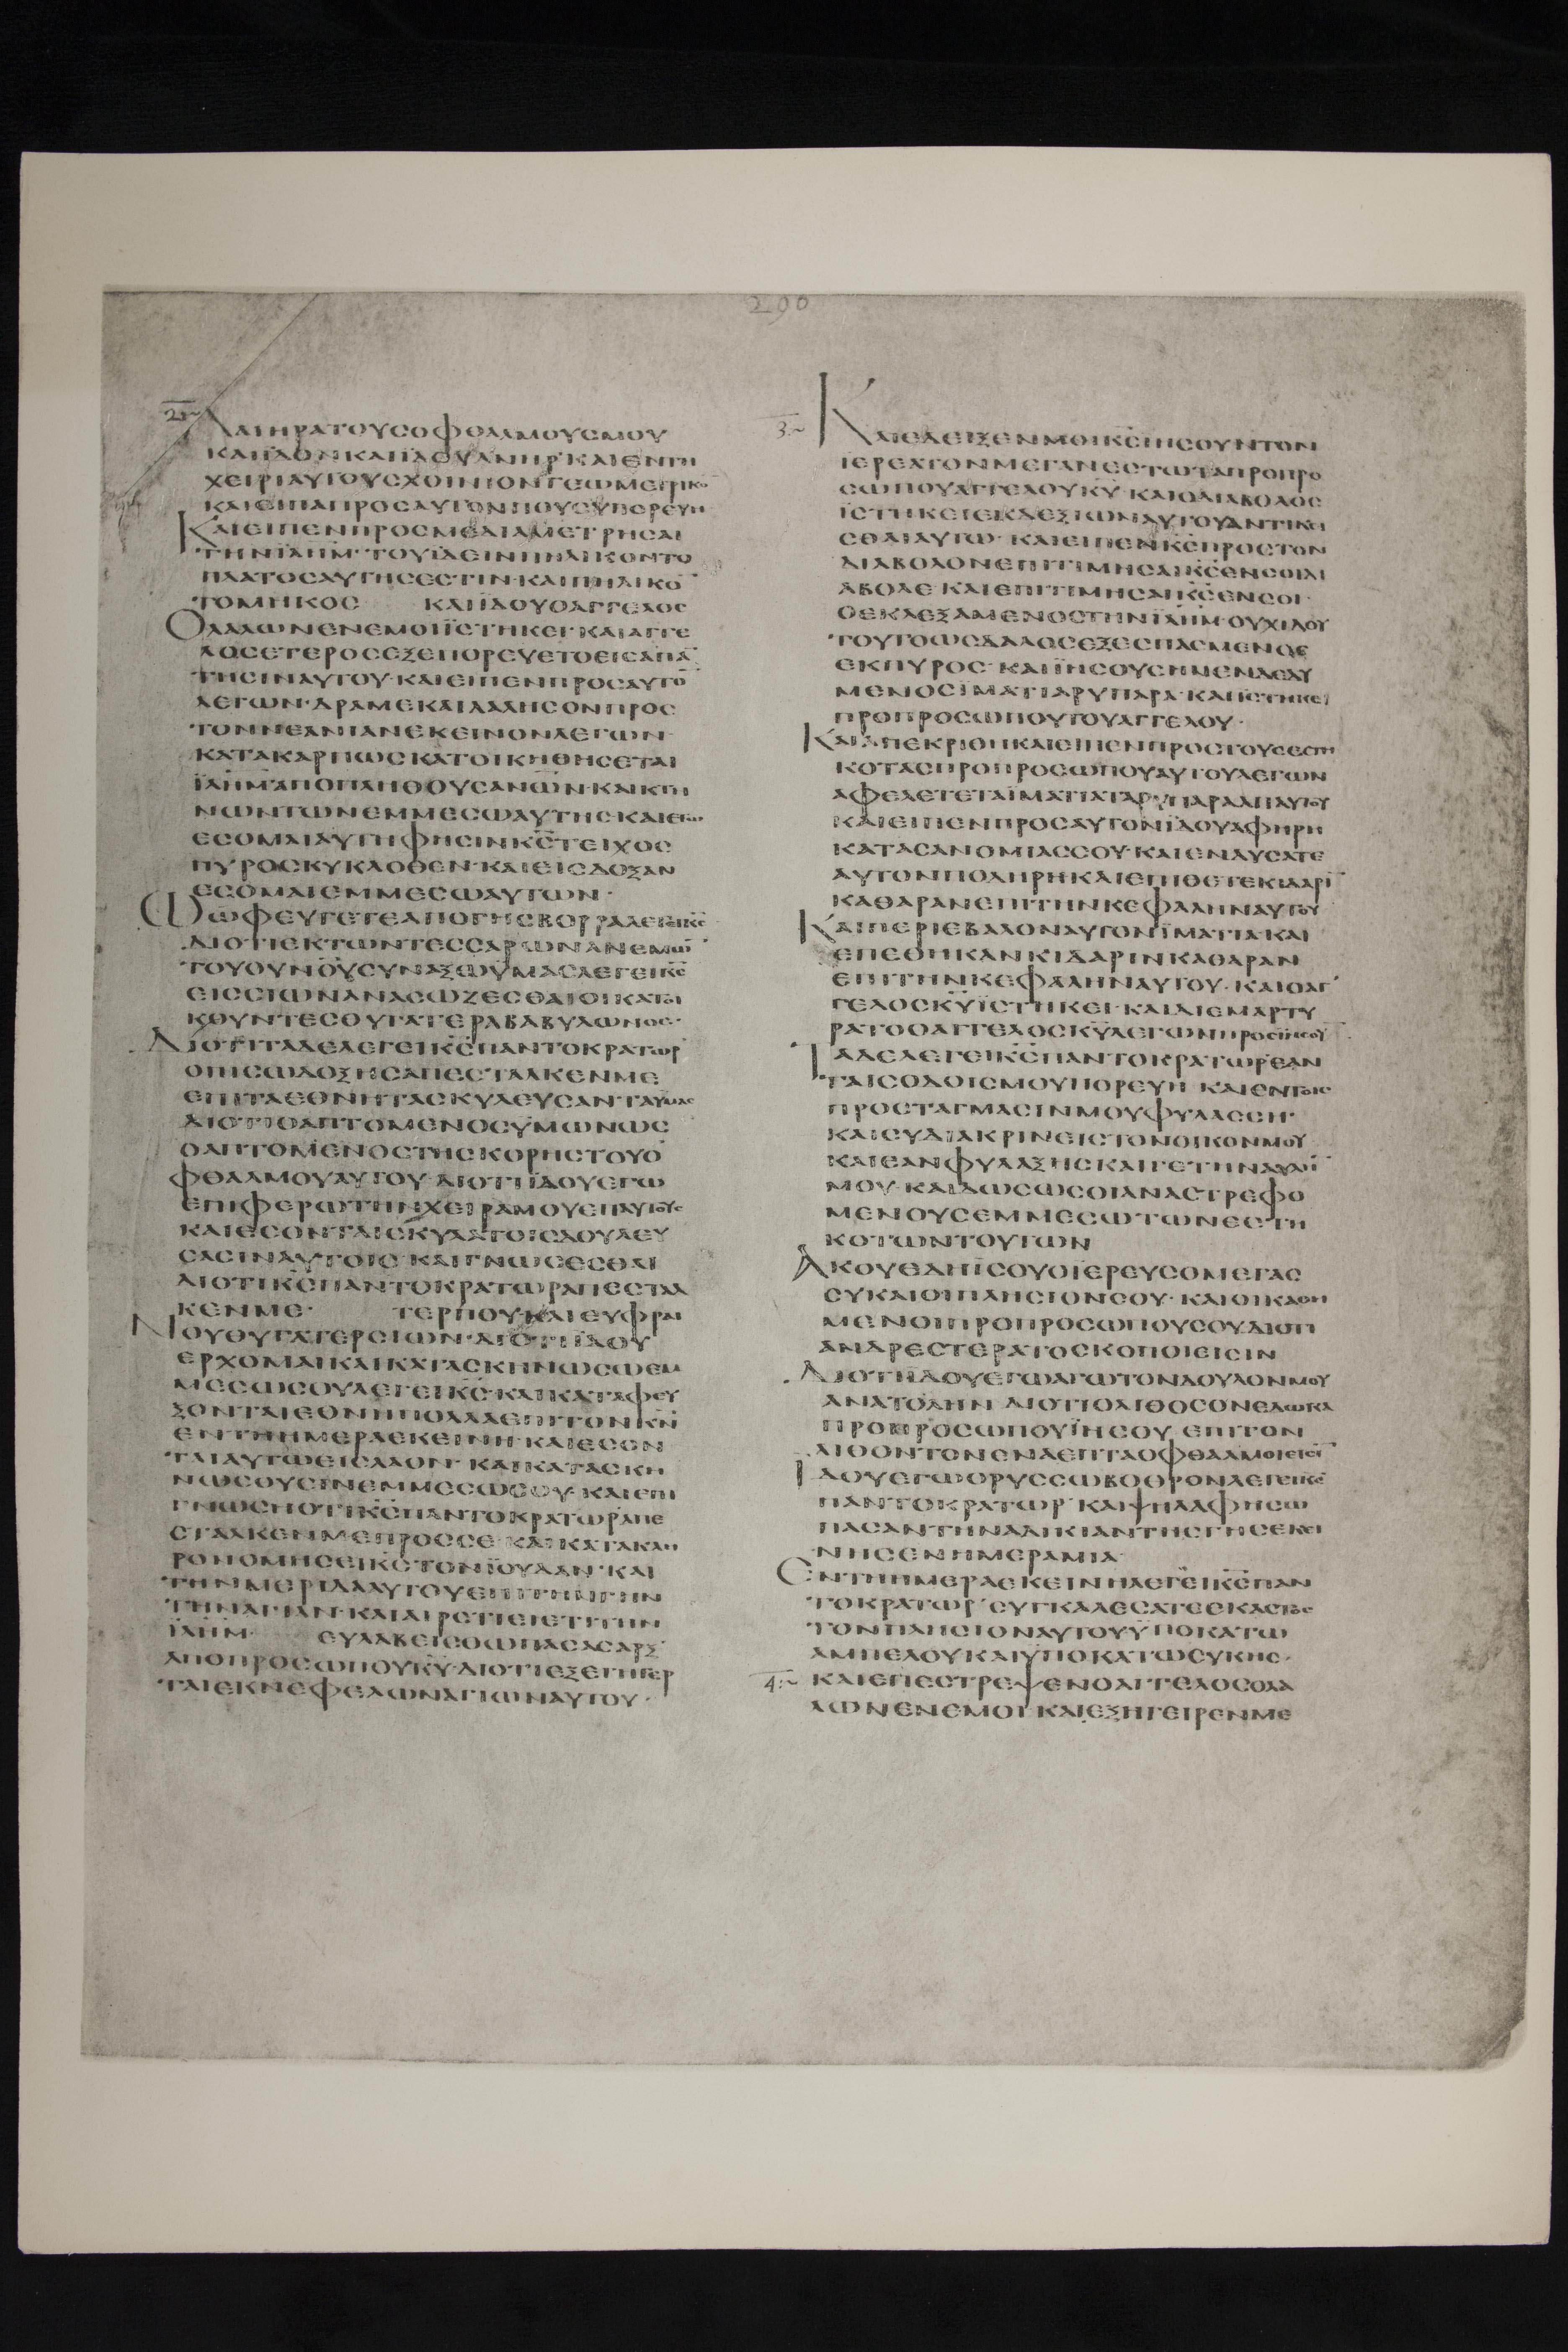 290
2
ΚΑΙΗΡΑΤΟΥΣΟΦΘΑΛΜΟΥΣΜΟΥ
ΚΑΙΪΔΟΝΚΑΙΪΔΟΥΑΝΗΡ·ΚΑΙΕΝΤΗ
ΧΕΙΡΙΑΥΤΟΥΣΧΟΙΝΙΟΝΓΕΩΜΕΤΡΙΚΟ̅
ΚΑΙΕΙΠΑΠΡΟΣΑΥΤΟΝΠΟΥΣΥΠΟΡΕΥΗ
ΚΑΙΕΙΠΕΝΠΡΟΣΜΕΔΙΑΜΕΤΡΗΣΑΙ
ΤΗΝΙ̅Λ̅Η̅Μ̅·ΤΟΥΪΔΕΙΝΠΗΛΙΚΟΝΤΟ
ΠΛΑΤΟΣΑΥΤΗΣΕΣΤΙΝ·ΚΑΙΠΗΛΙΚΟ̅
ΤΟΜΗΚΟΣ ΚΑΙΪΔΟΥΟΑΓΓΕΛΟΣ
ΟΛΑΛΩΝΕΝΕΜΟΙΪΣΤΗΚΕΙ·ΚΑΙΑΓΓΕ
ΛΟΣΕΤΕΡΟΣΕΞΕΠΟΡΕΥΕΤΟΕΙΣΑΠΑ̅
ΤΗΣΙΝΑΥΤΟΥ·ΚΑΙΕΙΠΕΝΠΡΟΣΑΥΤΟ̅
ΛΕΓΩΝ·ΔΡΑΜΕΚΑΙΛΑΛΗΣΟΝΠΡΟΣ
ΤΟΝΝΕΑΝΙΑΝΕΚΕΙΝΟΝΛΕΓΩΝ
ΚΑΤΑΚΑΡΠΩΣΚΑΤΟΙΚΗΘΗΣΕΤΑΙ
Ι̅Λ̅Η̅Μ̅ΑΠΟΠΛΗΘΟΥΣΑΝΩ̅Ν̅·ΚΑΙΚΤΗ
ΝΩΝΤΩΝΕΜΜΕΣΩΑΥΤΗΣ·ΚΑΙΕΓΩ
ΕΣΟΜΑΙΑΥΤΗΦΗΣΙΝΚ̅Σ̅ΤΕΙΧΟΣ
ΠΥΡΟΣΚΥΚΛΟΘΕΝ·ΚΑΙΕΙΣΔΟΞΑΝ
ΕΣΟΜΑΙΕΜΜΕΣΩΑΥΤΩΝ·
ΩΩΦΕΥΓΕΤΕΑΠΟΓΗΣΒΟΡΡΑΛΕΓΕΙΚ̅Σ̅
ΔΙΟΤΙΕΚΤΩΝΤΕΣΣΑΡΩΝΑΝΕΜΩ̅
ΤΟΥΟΥΝΟΥΣΥΝΑΞΩΫΜΑΣΛΕΓΕΙΚ̅Σ̅
ΕΙΣΣΙΩΝΑΝΑΣΩΖΕΣΘΑΙΟΙΚΑΤΟΙ
ΚΟΥΝΤΕΣΘΥΓΑΤΕΡΑΒΑΒΥΛΩΝΟΣ·
ΔΙΟΤΙΤΑΔΕΛΕΓΕΙΚ̅Σ̅ΠΑΝΤΟΚΡΑΤΩΡ
ΟΠΙΣΩΔΟΞΗΣΑΠΕΣΤΑΛΚΕΝΜΕ
ΕΠΙΤΑΕΘΝΗΤΑΣΚΥΛΕΥΣΑΝΤΑΥΜΑΣ
ΔΙΟΤΙΟΑΠΤΟΜΕΝΟΣΥΜΩΝΩΣ
ΟΑΠΤΟΜΕΝΟΣΤΗΣΚΟΡΗΣΤΟΥΟ
ΦΘΑΛΜΟΥΑΥΤΟΥ·ΔΙΟΤΙΪΔΟΥΕΓΩ
ΕΠΙΦΕΡΩΤΗΝΧΕΙΡΑΜΟΥΕΠΑΥΤΟΥΣ
ΚΑΙΕΣΟΝΤΑΙΣΚΥΛΑΤΟΙΣΔΟΥΛΕΥ
ΣΑΣΙΝΑΥΤΟΙΣ·ΚΑΙΓΝΩΣΕΣΘΑΙ
ΔΙΟΤΙΚ̅Σ̅ΠΑΝΤΟΚΡΑΤΩΡΑΠΕΣΤΑΛ
ΚΕΝΜΕ· ΤΕΡΠΟΥ·ΚΑΙΕΥΦΡΑΙ
ΝΟΥΘΥΓΑΤΕΡΣΙΩΝ·ΔΙΟΤΙΪΔΟΥ
ΕΡΧΟΜΑΙΚΑΙΚΑΤΑΣΚΗΝΩΣΩΕΜ
ΜΕΣΩΣΟΥΛΕΓΕΙΚ̅Σ̅·ΚΑΙΚΑΤΑΦΕΥ
ΞΟΝΤΑΙΕΘΝΗΠΟΛΛΑΕΠΙΤΟΝΚ̅Ν̅
ΕΝΤΗΗΜΕΡΑΕΚΕΙΝΗ·ΚΑΙΕΣΟΝ
ΤΑΙΑΥΤΩΕΙΣΛΑΟΝ·ΚΑΙΚΑΤΑΣΚΗ
ΝΩΣΟΥΣΙΝΕΜΜΕΣΩΣΟΥ·ΚΑΙΕΠΙ
ΓΝΩΣΗΟΤΙΚ̅Σ̅ΠΑΝΤΟΚΡΑΤΩΡΑΠΕ
ΣΤΑΛΚΕΝΜΕΠΡΟΣΣΕ·ΚΑΙΚΑΤΑΚΛΗ
ΡΟΝΟΜΗΣΕΙΚ̅Σ̅ΤΟΝΪΟΥΔΑΝ·ΚΑΙ
ΤΗΝΜΕΡΙΔΑΑΥΤΟΥΕΠΙΤΗΝΓΗΝ
ΤΗΝΑΓΙΑΝ·ΚΑΙΑΙΡΕΤΙΕΙΕΤΙΤΗΝ
Ι̅Λ̅Η̅Μ̅· ΕΥΛΑΒΕΙΣΘΩΠΑΣΑΣΑΡΞ
ΑΠΟΠΡΟΣΩΠΟΥΚ̅Υ̅·ΔΙΟΤΙΕΞΕΓΗΓΕΡ
ΤΑΙΕΚΝΕΦΕΛΩΝΑΓΙΩΝΑΥΤΟΥ·
3
ΚΑΙΕΔΕΙΞΕΝΜΟΙΚ̅Σ̅ΙΗΣΟΥΝΤΟΝ
ΙΕΡΕΑΤΟΝΜΕΓΑΝΕΣΤΩΤΑΠΡΟΠΡΟ
ΣΩΠΟΥΑΓΓΕΛΟΥΚ̅Υ̅·ΚΑΙΟΔΙΑΒΟΛΟΣ
ΪΣΤΗΚΕΙΕΚΔΕΞΙΩΝΑΥΤΟΥΑΝΤΙΚΙ
ΣΘΑΙΑΥΤΩ·ΚΑΙΕΙΠΕΝΚ̅Σ̅ΠΡΟΣΤΟΝ
ΔΙΑΒΟΛΟΝΕΠΙΤΙΜΗΣΑΙΚ̅Σ̅ΕΝΣΟΙΔΙ
ΑΒΟΛΕ·ΚΑΙΕΠΙΤΙΜΗΣΑΙΚ̅Σ̅ΕΝΣΟΙ·
ΟΕΚΛΕΞΑΜΕΝΟΣΤΗΝΙ̅Λ̅Η̅Μ̅·ΟΥΧΙΔΟΥ
ΤΟΥΤΟΩΣΔΑΛΟΣΕΞΕΣΠΑΣΜΕΝΟΣ
ΕΚΠΥΡΟΣ·ΚΑΙΪΗΣΟΥΣΗΝΕΝΔΕΔΥ
ΜΕΝΟΣΪΜΑΤΙΑΡΥΠΑΡΑ·ΚΑΙΪΣΤΗΚΕΙ
ΠΡΟΠΡΟΣΩΠΟΥΤΟΥΑΓΓΕΛΟΥ·
ΚΑΙΑΠΕΚΡΙΘΗΚΑΙΕΙΠΕΝΠΡΟΣΤΟΥΣΕΣΤΗ
ΚΟΤΑΣΠΡΟΠΡΟΣΩΠΟΥΑΥΤΟΥΛΕΓΩΝ
ΑΦΕΛΕΤΕΤΑΪΜΑΤΙΑΤΑΡΥΠΑΡΑΑΠΑΥΤΟΥ
ΚΑΙΕΙΠΕΝΠΡΟΣΑΥΤΟΝΪΔΟΥΑΦΗΡΗ
ΚΑΤΑΣΑΝΟΜΙΑΣΣΟΥ·ΚΑΙΕΝΔΥΣΑΤΕ
ΑΥΤΟΝΠΟΔΗΡΗΚΑΙΕΠΙΘΕΤΕΚΙΔΑΡΙ̅
ΚΑΘΑΡΑΝΕΠΙΤΗΝΚΕΦΑΛΗΝΑΥΤΟΥ
ΚΑΙΠΕΡΙΕΒΑΛΟΝΑΥΤΟΝΪΜΑΤΙΑ·ΚΑΙ
ΕΠΕΘΗΚΑΝΚΙΔΑΡΙΝΚΑΘΑΡΑΝ
ΕΠΙΤΗΝΚΕΦΑΛΗΝΑΥΤΟΥ·ΚΑΙΟΑΓ
ΓΕΛΟΣΚ̅Υ̅ΪΣΤΗΚΕΙ·ΚΑΙΔΙΕΜΑΡΤΥ
ΡΑΤΟΟΑΓΓΕΛΟΣΚ̅Υ̅ΛΕΓΩΝΠΡΟΣΙΗΣΟΥ̅
ΤΑΔΕΛΕΓΕΙΚ̅Σ̅ΠΑΝΤΟΚΡΑΤΩΡΕΑΝ
ΤΑΙΣΟΔΟΙΣΜΟΥΠΟΡΕΥΗ·ΚΑΙΕΝΤΟΙΣ
ΠΡΟΣΤΑΓΜΑΣΙΝΜΟΥΦΥΛΑΣΣΗ·
ΚΑΙΣΥΔΙΑΚΡΙΝΕΙΣΤΟΝΟΙΚΟΝΜΟΥ
ΚΑΙΕΑΝΦΥΛΑΞΗΣΚΑΙΓΕΤΗΝΑΥΛΗ̅
ΜΟΥ·ΚΑΙΔΩΣΩΣΟΙΑΝΑΣΤΡΕΦΟ
ΜΕΝΟΥΣΕΜΜΕΣΩΤΩΝΕΣΤΗ
ΚΟΤΩΝΤΟΥΤΩΝ
ΑΚΟΥΕΔΗΪΣΟΥΟΪΕΡΕΥΣΟΜΕΓΑΣ
ΣΥΚΑΙΟΙΠΛΗΣΙΟΝΣΟΥ·ΚΑΙΟΙΚΑΘΗ
ΜΕΝΟΙΠΡΟΠΡΟΣΩΠΟΥΣΟΥΔΙΟΤΙ
ΑΝΔΡΕΣΤΕΡΑΤΟΣΚΟΠΟΙΕΙΣΙΝ
ΔΙΟΤΙΪΔΟΥΕΓΩΑΓΩΤΟΝΔΟΥΛΟΝΜΟΥ
ΑΝΑΤΟΛΗΝ·ΔΙΟΤΙΟΛΙΘΟΣΟΝΕΔΩΚΑ
ΠΡΟΠΡΟΣΩΠΟΥΪΗΣΟΥ·ΕΠΙΤΟΝ
ΛΙΘΟΝΤΟΝΕΝΑΕΠΤΑΟΦΘΑΛΜΟΙΕΙΣΙ̅
ΪΔΟΥΕΓΩΟΡΥΣΣΩΒΟΘΡΟΝΛΕΓΕΙΚ̅Σ̅
ΠΑΝΤΟΚΡΑΤΩΡ·ΚΑΙΨΗΛΑΦΗΣΩ
ΠΑΣΑΝΤΗΝΑΔΙΚΙΑΝΤΗΣΓΗΣΕΚΕΙ
ΝΗΣΕΝΗΜΕΡΑΜΙΑ·
ΕΝΤΗΗΜΕΡΑΕΚΕΙΝΗΛΕΓΕΙΚ̅Σ̅ΠΑΝ
ΤΟΚΡΑΤΩΡ·ΣΥΓΚΑΛΕΣΑΤΕΕΚΑΣΤΟΣ
ΤΟΝΠΛΗΣΙΟΝΑΥΤΟΥΫΠΟΚΑΤΩ
ΑΜΠΕΛΟΥΚΑΙΫΠΟΚΑΤΩΣΥΚΗΣ·
4
ΚΑΙΕΠΕΣΤΡΕΨΕΝΟΑΓΓΕΛΟΣΟΛΑ
ΛΩΝΕΝΕΜΟΙ·ΚΑΙΕΞΗΓΕΙΡΕΝΜΕ